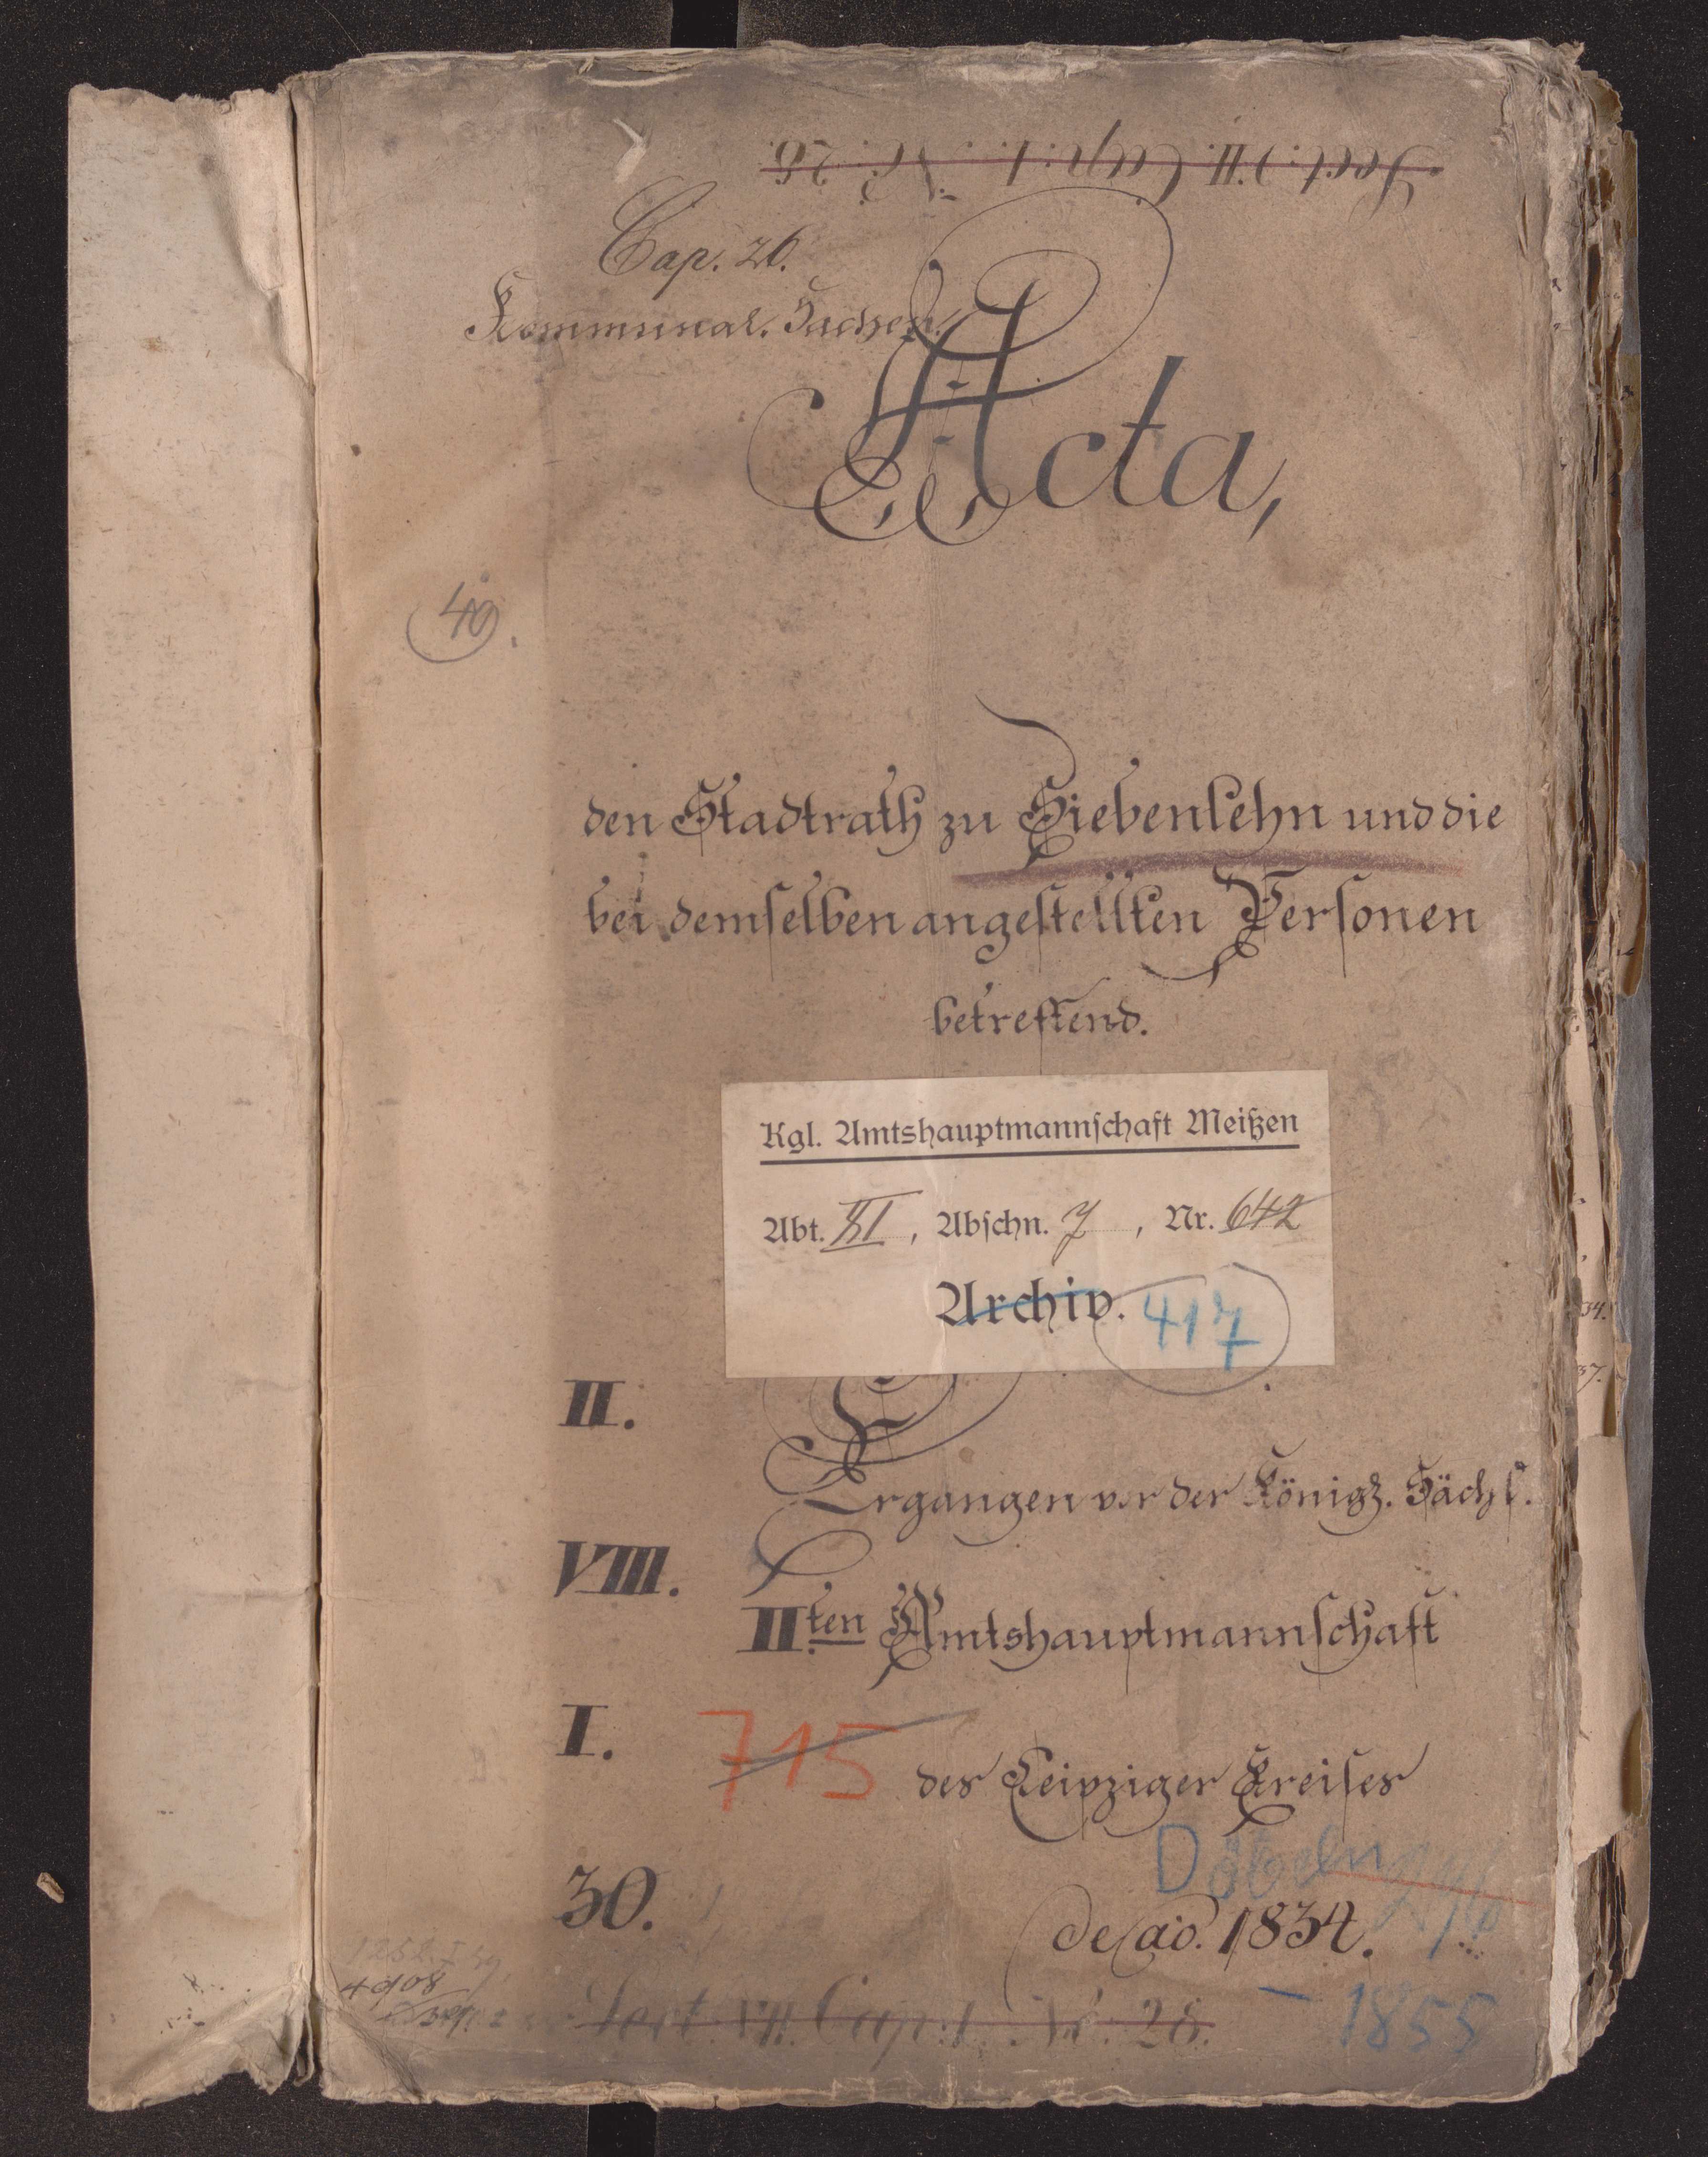 Sect: VII. Cap: 1. No: 28.
Cap. 26.
Kommunal. Sachen.
Acta,
49.
den Stadtrath zu Siebenlehn und die
bei demselben angestellten Personen
betreffend.
Kgl. Amtshauptmannschaft Meißen
Abt. XI, Abschn. 7, Nr. 642
Archiv. 417
II.
Ergangen vor der Königl. Sächs.
VIII.
IIten Amtshauptmannschaft
I.
715
des Leipziger Kreises
Döbeln
30.
de ao. 1834.
4908
Sect. VII. Cap: 1. No: 28.
– 1855
34.
37.